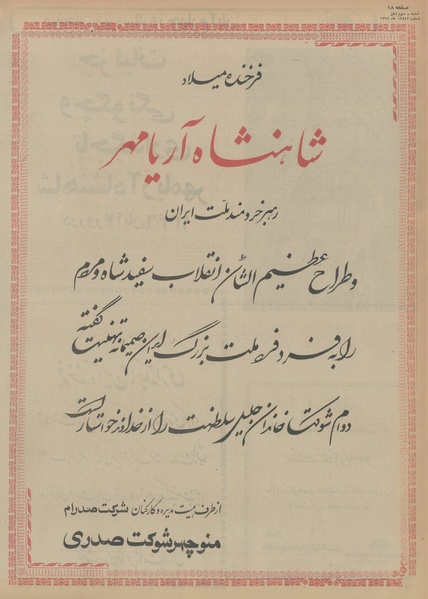 صفحه ۱۸
فرخنده میلاد
شاهنشاه آریامهر
رهبر خردمند ملت ایران
و طراح عظیم الشان انقلاب سفید شاه و مردم
را به فرد فرد ملت بزرگ ایران صمیمانه تهنیت گفته
دوام شوکت خاندان جلیل سلطنت را از خداوند خواستار است
از طرف هیئت مدیره و کارکنان شرکت صدرام
منوچهر شوکت صدری